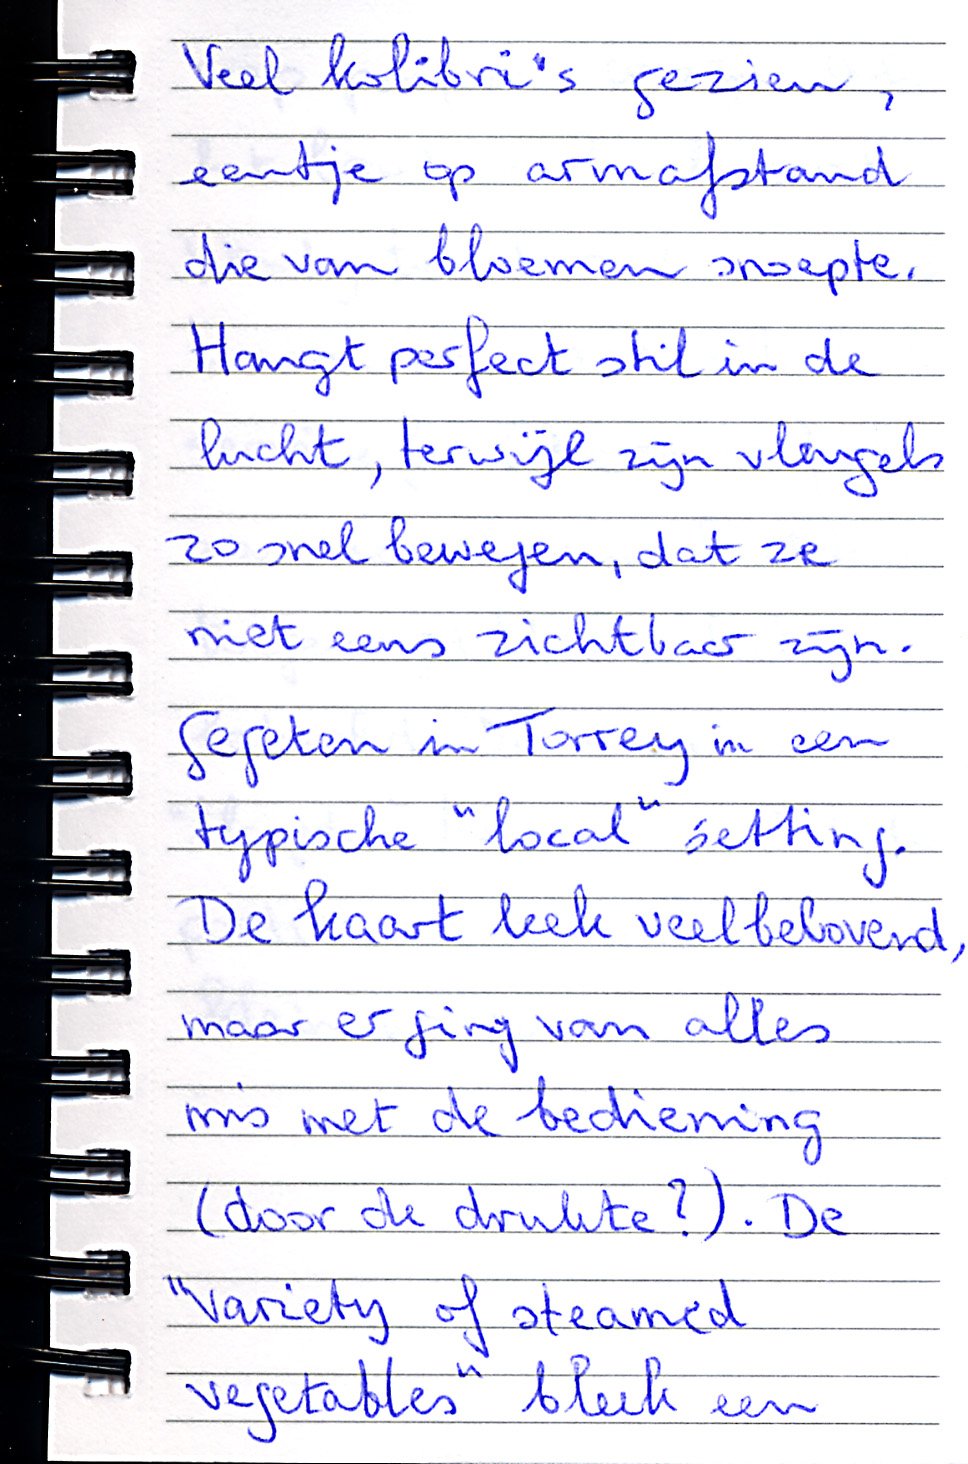 Veel kolibri's gezien,
eentje op armafstand
die van bloemen snoepte.
Hangt perfect stil in de
lucht, terwijl zijn vleugels
zo snel bewegen, dat ze
niet eens zichtbaar zijn.
Gegeten in Torrey in een
typische "local" setting.
De kaart leek veelbelovend,
maar er ging van alles
mis met de bediening
(door de drukte?). De
"variety of steamed
vegetables" bleek een